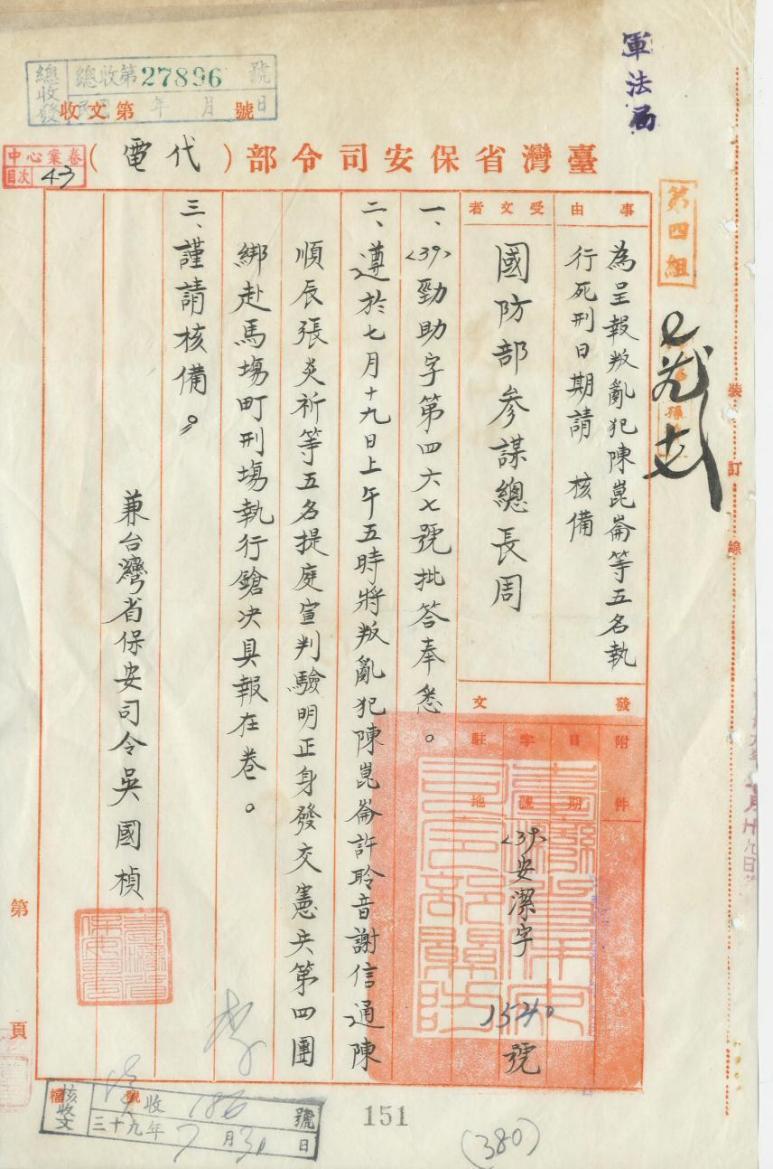 軍法局
總收發
總收第27896號
收文第 年 月 日號
臺灣省保安司令部(代電)
中心案卷
目次 43
第四組
事由
為呈報叛亂犯陳崑崙等五名執
行死刑日期請 核備
受文者
國防部參謀總長周
發文
附件
日期
字號
駐地
<39>安潔字 1540 號
一、<39>勁助字第四六七號批答奉悉。
二、遵於七月十九日上午五時將叛亂犯陳崑崙許聆音謝信通陳
順辰張炎祈等五名提庭宣判驗明正身發交憲兵第四團
綁赴馬場町刑場執行鎗決具報在卷。
三、謹請核備。
兼台灣省保安司令吳國楨
裝訂線
第 頁
李
收 186 號
三十九年 7月30日
151
(380)